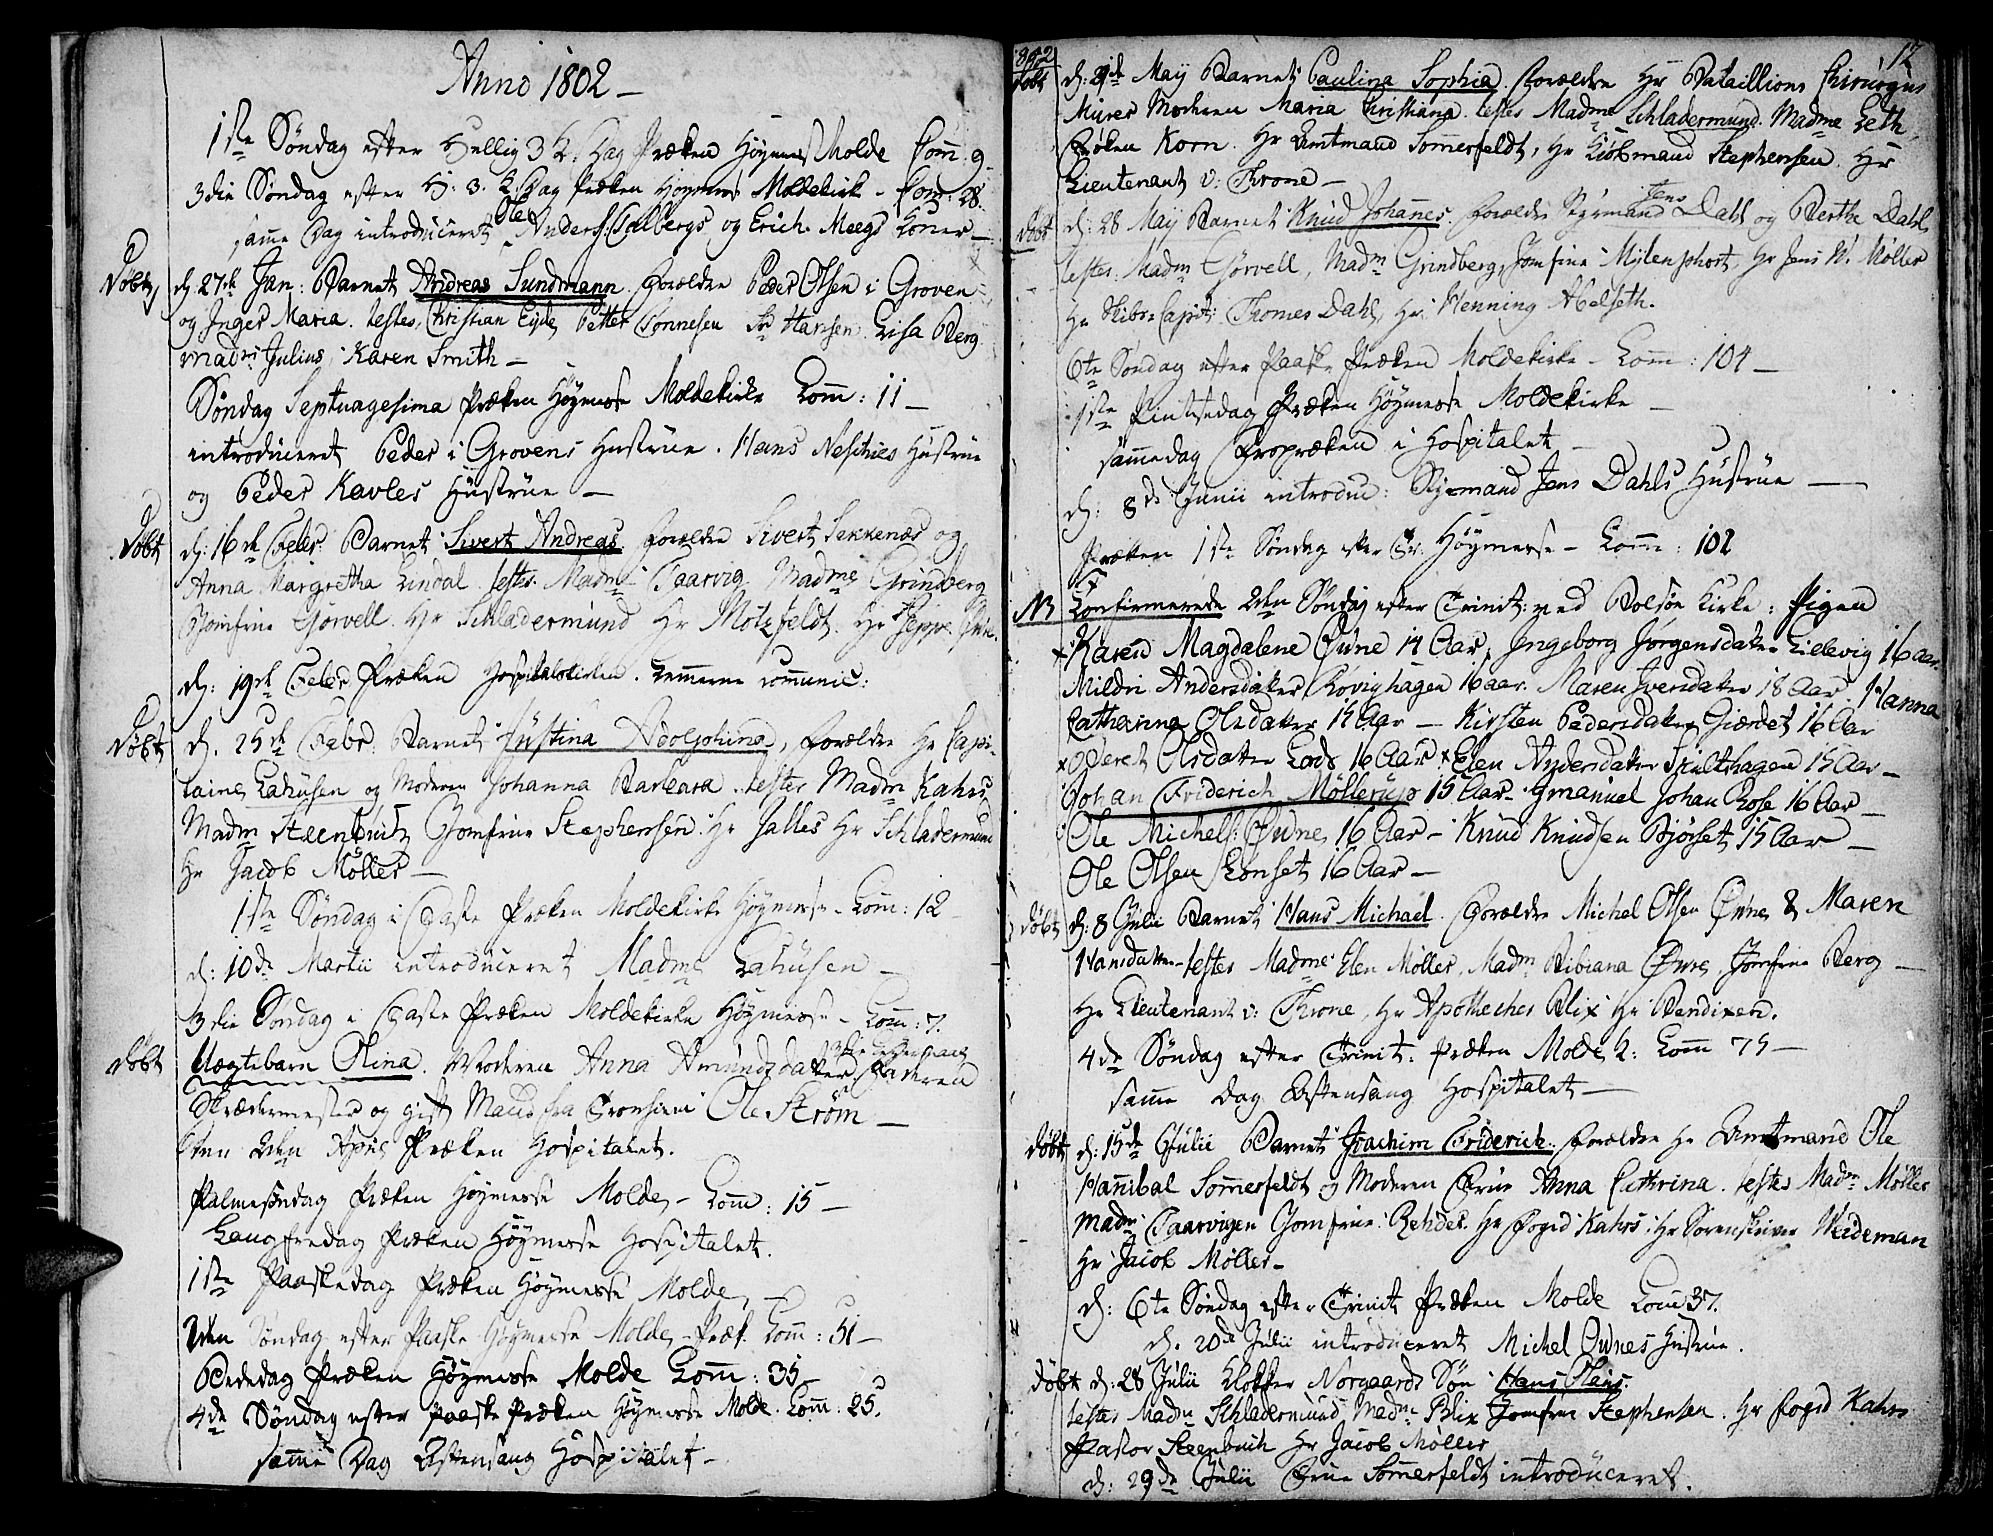 Anno 1802 –
1ste Söndag efter Hellig 3 K. Dag Præken Höymess Molde Com: 9.
3die Söndag efter H: 3. K. Dag Præken Höymess Moldekirk – Com: 28.
samme Dag introduceret Ole Anders: Talbergs og Erich Meegs Koner –
Döbt d. 27de Jan: Barnet Andreas Sundmann. Forældre Peder Olsen i Groven
og Inger Maria. testes, Christian Eyde, Petter Tönnesen Hansen Lisa Berg
Madme Julius, Karen Smith –
Söndag Septuagesima Præken Höymesse Moldekirke Com: 11 –
introduceret Peder i Grovens Hustrue. Hans Hustrue
og Peder Kavles Hustrue –
Döbt d: 16de Febr: Barnet Sivert Andreas Forældre Sivert Sekkenæs og
Anna Margretha Lindal. testes Madme Taarvig Madme Grindberg
Jomfrue Görvell. Hr Schladermund Hr Motzfeldt. Hr Jeppe
d: 19de Febr Præken Hospitalskirken. Lemmerne communic:
Döbt d. 25de Febr: Barnet Justina Adolphina, forældre Hr Capi-
taine Lahusen og Moderen Johanna Barbara. testes Madm Kahrs
Madm Steenbuch Jomfrue Stephensen. Hr Salles Hr Schladermund
Hr Jacob Möller –
1ste Söndag i Faste Præken Moldekirke Höymesse – Com: 12
d: 10de Martii introduceret Madme Lahusen –
3die Söndag i Faste Præken Moldekirke Höymesse – Com: 7.
Döbt Uægtebarn Olina. Moderen Anna Amundsdatter Faderen
Skrædermester og gift Mand fra Tronhiem Ole Ström –
den 2den April Præken Hospitalet.
Palmesöndag Præken Höymesse Molde – Com: 15 –
Langfredag Præken Höymesse Hospitalet.
1ste Paaskedag Præken Höymesse Molde, –
2den Söndag efter Paaske Höymesse Molde – Præk. Com: 51 –
Bededag Præken Höymesse Molde Com: 35 –
4de Söndag efter Paaske Præken Höymesse Molde. Com: 25.
samme Dag Aftensang Hospitalet –
1802
17
Döbt d: 21de May Barnet Paulina Sophia. Forældre Hr Bataillions Chirurgus
Murer Moderen Maria Christiana. testes Madme Schladermund. Madme Leth
Fröken Korn. Hr Amtmand Sommerfeldt, Hr Kiöbmand Stephensen. Hr
Lieutenant v: Throne –
Döbt d: 28 May Barnet Knud Johannes. Forældre Styrmand Jens Dahl og Berthe Dahl,
testes. Madm Görvell, Madm Grindberg, Jomfrue Mylenphort, Hr Jens W. Möller
Hr Skibs-Capit: Thomes Dahl, Hr. Henning Abelseth.
6te Söndag efter Paaske Præken Moldekirke – Com: 104 –
1ste Pintsedag Præken Höymesse Moldekirke –
sammedag Fropræken i Hospitalet –
d: 8de Junii introduc: Styrmand Jens Dahls Hustrue –
Præken 1ste Söndag efter Tr: Höymesse – Com: 102
NB Confirmerede 2den Söndag efter Trinit: ved Bolsöe Kirke: Pigen
x Karen Magdalene Övne 14 Aar, Ingeborg Jörgensdatter Lillevig 16 aar.
Mildri Andersdatter Rövighagen 16 aar. Maren Iversdatter 18 Aar. Hanna
Catharina Olsdatter 15 Aar – Kirsten Pedersdatter Giærdet 16 Aar
x Beret Olsdatter Lods 16 Aar x Elen Andersdatter 15 Aar –
Johan Friderich Möllerup 15 Aar – Emanuel Johan Rose 16 Aar –
Ole Michels: Övne, 16 Aar – Knud Knudsen Björset 15 Aar –
Ole Olsen Lonset 16 Aar –
Döbt d: 8 Julii Barnet Hans Michael. Forældre Michel Olsen Övne & Maren
Hansdatter – testes Madme Elen Möller, Madm Bibiana Övne, Jomfrue Berg –
Hr Lieutenant v: Throne, Hr Apothecher Blix Hr Bendixen.
4de Söndag efter Trinit: Præken Molde K: Com 75 –
samme Dag Aftensang Hospitalet –
Döbt d: 15de Julii Barnet Joachim Friderich. Forældre Hr Amtmand Ole
Hannibal Sommerfeldt og Moderen Frue Anna Cathrina. testes Madme Möller
Madm: Taarvigen Jomfrue: Rehder Hr Foged Kahrs: Hr Sorenskriver Weideman
Hr Jacob Möller –
d: 6te Söndag efter Trinit Præken Molde Com 37.
d. 20de Julii introduceret Michel Övnes Hustrue.
Döbt d: 28 Julii Klokker Norgaards Sön Hans Olaus.
testes Madm Schladermund Madm Blix Jomfrue Stephensen. Hr Foged Kahrs
Pastor Steenbuch Hr Jacob Möller
d: 29de Julii Frue Sommerfeldt introduceret.